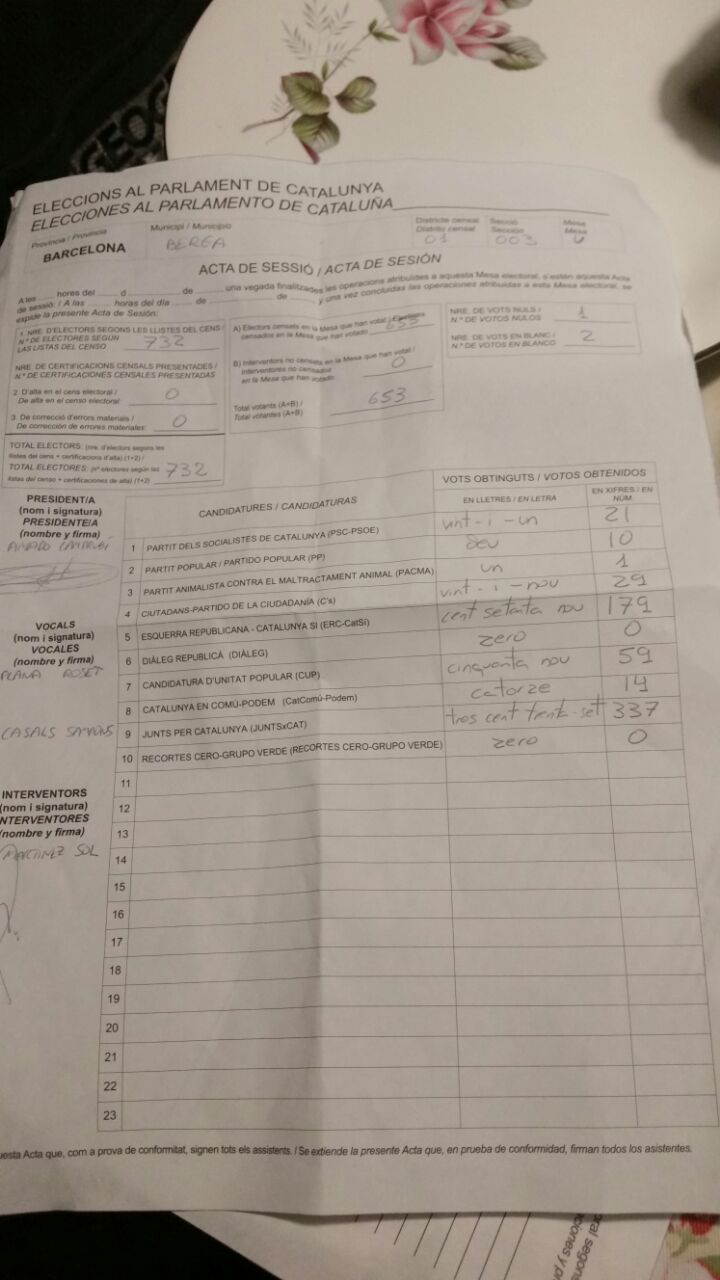 ELECCIONS AL PARLAMENT DE CATALUNYA
ELECCIONES AL PARLAMENTO DE CATALUÑA
Província / Provincia
BARCELONA
Municipi / Municipio
BERGA
Districte censal
Distrito censal
01
Secció
Sección
003
Mesa
Mesa
U
ACTA DE SESSIÓ / ACTA DE SESIÓN
A les hores del d de una vegada finalitzades les operacions atribuïdes a aquesta Mesa electoral, s'estén aquesta Acta
de sessió. / A las horas del día de de y una vez concluidas las operaciones atribuidas a esta Mesa electoral, se
expide la presente Acta de Sesión:
1. NRE. D'ELECTORS SEGONS LES LLISTES DEL CENS /
N.º DE ELECTORES SEGÚN
LAS LISTAS DEL CENSO
732
NRE. DE CERTIFICACIONS CENSALS PRESENTADES /
N.º DE CERTIFICACIONES CENSALES PRESENTADAS
2. D'alta en el cens electoral /
De alta en el censo electoral:
0
3. De correcció d'errors materials /
De corrección de errores materiales:
0
TOTAL ELECTORS: (nre. d'electors segons les
llistes del cens + certificacions d'alta) (1+2) /
TOTAL ELECTORES: (nº electores según las
listas del censo + certificaciones de alta) (1+2)
732
A) Electors censats en la Mesa que han votat / Electores
censados en la Mesa que han votado
653
B) Interventors no censats en la Mesa que han votat /
Interventores no censados
en la Mesa que han votado
0
Total votants (A+B) /
Total votantes (A+B)
653
NRE. DE VOTS NULS /
N.º DE VOTOS NULOS
1
NRE. DE VOTS EN BLANC /
N.º DE VOTOS EN BLANCO
2
PRESIDENT/A
(nom i signatura)
PRESIDENTE/A
(nombre y firma)
VOCALS
(nom i signatura)
VOCALES
(nombre y firma)
PLANA ROSET
CASALS
INTERVENTORS
(nom i signatura)
INTERVENTORES
(nombre y firma)
MARTINEZ SOL
CANDIDATURES / CANDIDATURAS
VOTS OBTINGUTS / VOTOS OBTENIDOS
EN LLETRES / EN LETRA
EN XIFRES / EN NÚM.
1 PARTIT DELS SOCIALISTES DE CATALUNYA (PSC-PSOE) vint-i-un 21
2 PARTIT POPULAR / PARTIDO POPULAR (PP) deu 10
3 PARTIT ANIMALISTA CONTRA EL MALTRACTAMENT ANIMAL (PACMA) un 1
4 CIUTADANS-PARTIDO DE LA CIUDADANÍA (C's) vint-i-nou 29
5 ESQUERRA REPUBLICANA - CATALUNYA SÍ (ERC-CatSí) cent setanta nou 179
6 DIÀLEG REPUBLICÀ (DIÀLEG) zero 0
7 CANDIDATURA D'UNITAT POPULAR (CUP) cinquanta nou 59
8 CATALUNYA EN COMÚ-PODEM (CatComú-Podem) catorze 14
9 JUNTS PER CATALUNYA (JUNTSxCAT) tres cent trenta-set 337
10 RECORTES CERO-GRUPO VERDE (RECORTES CERO-GRUPO VERDE) zero 0
11
12
13
14
15
16
17
18
19
20
21
22
23
uesta Acta que, com a prova de conformitat, signen tots els assistents. / Se extiende la presente Acta que, en prueba de conformidad, firman todos los asistentes.